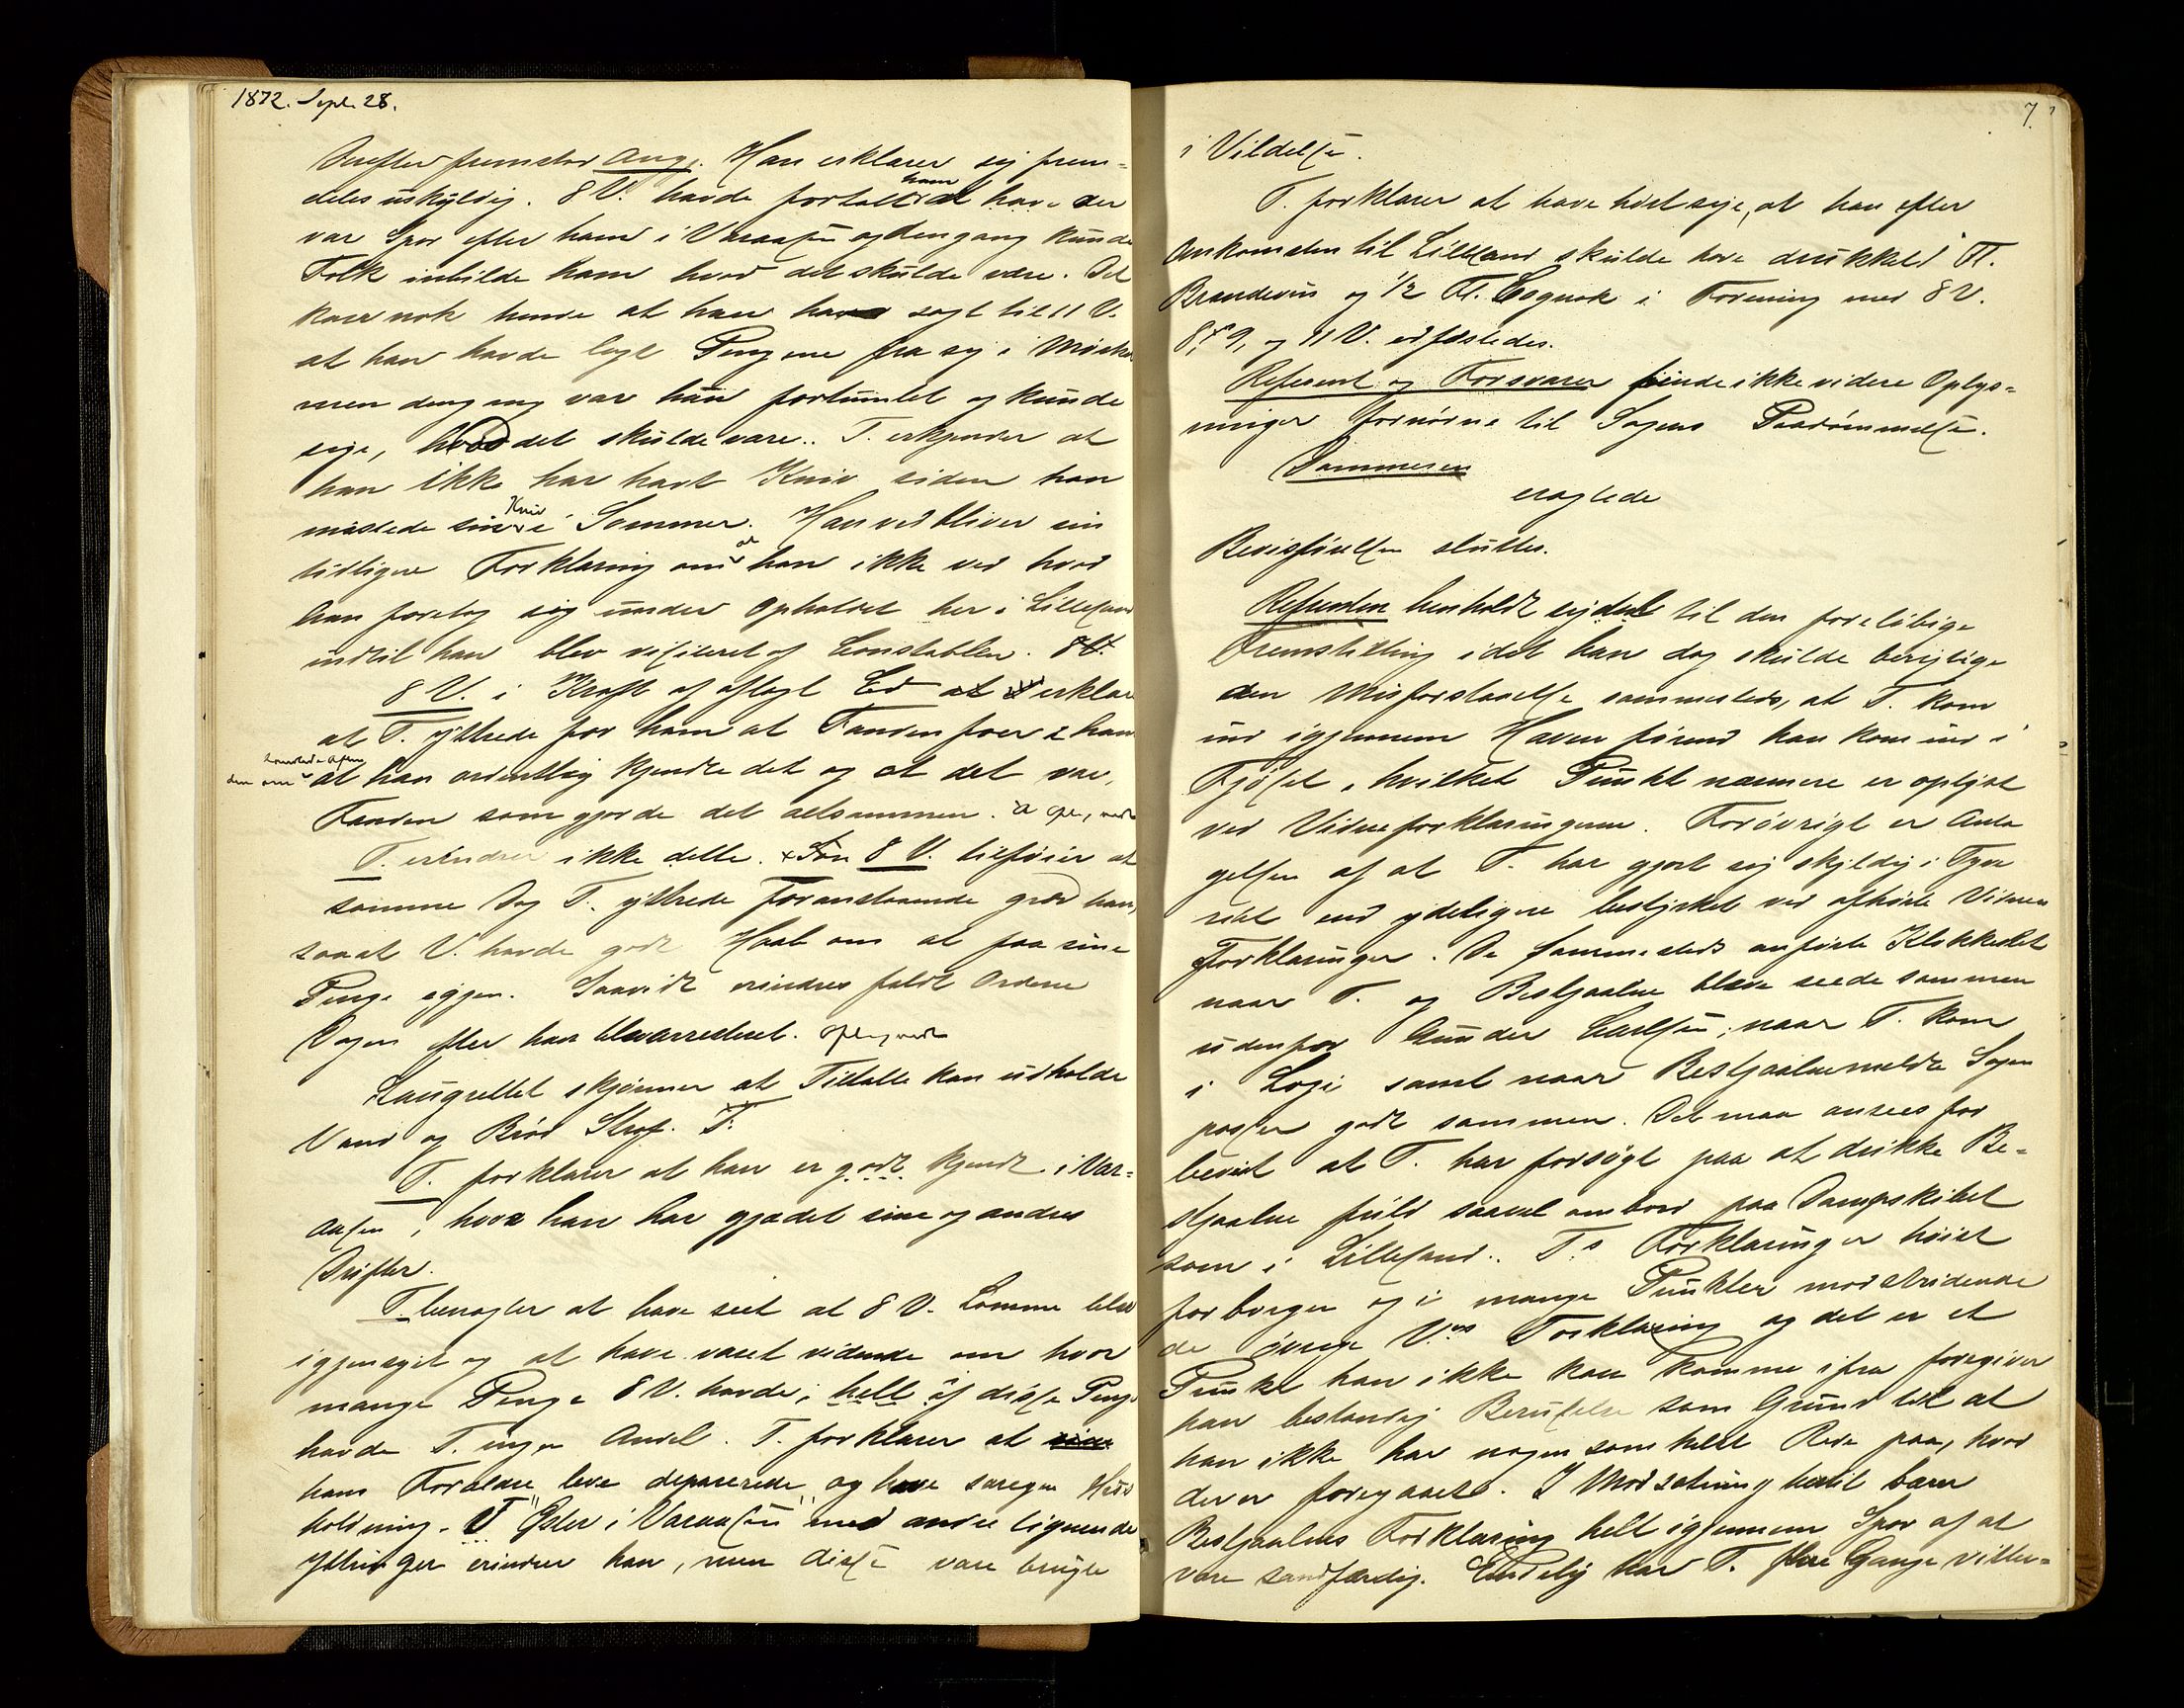 1872. Sept. 28.
Derefter fremstod Ang. Han erklarer sig frem=
deles uskyldig. 8 V. havde fortalt ham at have der
var Spor efter ham i Varaasen og dengang kunde
Folk inbilde ham hvad det skulde være. Det
kan nok hende at han have sagt til 11 V.
at han havde lagt Pengene fra sig i Mørke
men dengang var han fortumlet og kunde
sige, hvad det skulde være. T. erkjender at
han ikke har havt Kniv siden han
mistede sin Kniv i Sommer. Han vedbliver sin
tidligere Forklaring om at han ikke ved hvad
han foretog sig under Opholdet her i Lillesand
indtil han blev visiteret af Constablen. 8 V.
8 V. i Kraft af aflagt Ed at erklar
at T. yttrede for ham at Fanden foer i ham
den om at han ordentlig kjendte det og at det var
Fanden som gjorde det altsammen.
T. erindrer ikke dette. 8 V. tilføier at
samme Dag T. yttrede foranstaaende græd han,
saaat V. havde godt Haab om at faa sine
Penge igjen. Saavidt erindres faldt Ordene
Dagen efter han blev arresteret. Oplæst vedt
Laugrettet skjønner at Tiltalte kan udholde
Vand og Brød Straf. T.
T. forklarer at han er godt kjendt i Var=
aasen, hvor han har gjædet sine og andres
Drifter.
T. benægter at have seet at 8 V. Lomme blev
igjensyet og at have været vidende om hvor
mange Penge 8 V. havde; helt af disse Penge
havde T. ingen Andel. T. forklarer at sine
hans Forældre leve "separerede" og have særegen Hus
holdning. T Gster i Varaasen med andre lignende
Yttringer erindrer han, men disse vare brugte
7.
i Vildelse.
T. forklarer at have hørt sige, at han efter
Ankomsten til Lillesand skulde have drukket 1 Fl.
Brændevin og 1/2 Fl. Cognak i Forening med 8 V.
8, 9, og 11 V. edfæstedes.
Referent og Forsvarer fandt ikke videre Oplys=
ninger fornødne til Sagens Paadømmelse.
Dommeren
eragtede
Bevisførelsen sluttet.
Referenten henholdt sig til den foreløbige
Fremstilling idet han dog skulde berigtige
den Misforstaaelse sammesteds, at T. kom
ind igjennem Haven førend han kom ind i
Fjøset, hvilket Punkt nærmere er oplyst
ved Vidneforklaringerne. Forøvrigt er Anta
gelsen af at T. har gjort sig skyldig i Tyve
riet end ydeligere bestyrket ved afhørte Vidners
Forklaringer. De sammesteds anførte Klokkeslet
naar T. og Bestjaalne bleve seede sammen
udenfor Gunder Carlsen, naar T. kom
i Logi samt naar Bestjaalne meldte Sagen
passer godt sammen. Det maa ansees for
bevist at T. har forsøgt paa at drikke Be=
stjaalne fuld saavel ombord paa Dampskibet
som i Lillesand. T.s Forklaringer høist
forborgen og i mange Punkter modstridende
de øvrige V.ers Forklaring og det er et
Punkt han ikke kan komme ifra foregiver
han bestandig Beruselse som Grund til at
han ikke har nogensomhelst Rede paa, hvad
der er foregaaet. I Modsætning hertil bærer
Bestjaalnes Forklaring helt igjennem Spor af at
være sandfærdig. Endelig har T. flere Gange villet=